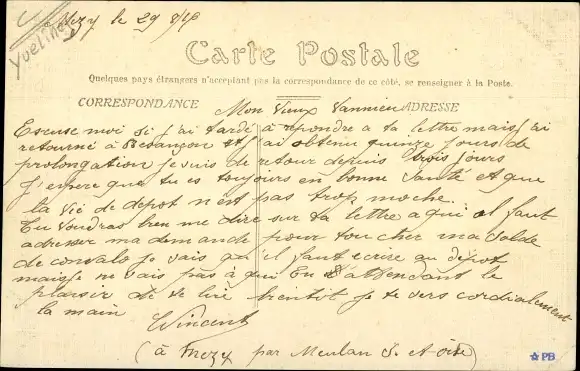 Yvelines
Mezy le 29 8/16
Carte Postale
Quelques pays étrangers n'acceptant pas la correspondance de ce côté, se renseigner à la Poste.
CORRESPONDANCE
ADRESSE
Mon Vieux Vannieu
Excuse moi si j'ai tardé à repondre a ta lettre mais j'ai
retourné à Besançon et j'ai obtenu quinze jours de
prolongation je suis de retour depuis trois jours
J'espere que tu es toujours en bonne santé et que
la vie de depot n'est pas trop moche.
Tu voudras bien me dire sur ta lettre a qui il faut
adresser ma demande pour toucher ma solde
de convalo je vais que il faut ecrire au dépot
mais je ne sais pas à qui En attendant le
plaisir de te lire bientot je te sers cordialement
la main
Vincent
(à Mezy par Meulan S. et Oise)
PB